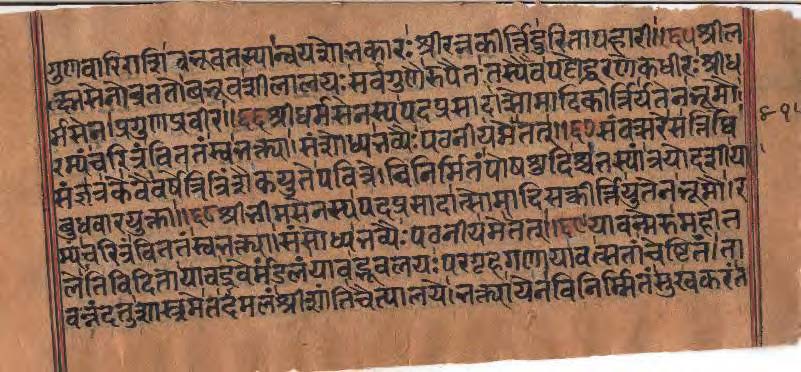 गुणवारिराशिर्बभूवतस्यान्वयशोभकारः श्रीरत्नकीर्त्तिर्दुरितापहारी॥६५श्रील
क्ष्मसेनोत्रततोबभूवशीलालयः सर्वगुणैरुपेतः तस्यैवपट्टोद्धरणैकधीरः श्रीध
र्मसेनःप्रगुणप्रवीरः॥६६श्रीधर्मसेनस्यपदप्रसादात्सोमादिकीर्त्तिर्यतनभूमौ।
रम्यंचरित्रंविततंस्वभक्त्या संशोध्यभव्यैः पठनीयमेतत्॥६७संवत्सरेसत्तिथि
संज्ञकेवैवर्षेत्रित्रिंशैकयुतेपवित्रे। विनिर्मितंपौषशुदिश्चतस्यांत्रयोदशीया
बुधवारयुक्ता॥६८श्रीभीमसेनस्यपदप्रसादात्सोमादिसत्कीर्त्तियुतेनभूमौ। र
म्यंचरित्रंविततंस्वभक्त्या। संसोध्यभव्यैः पठनीयमेतत्॥६९यावन्मेरुमहीत
लेतिविदितोयावद्रवेर्मंडलंयावद्भूवलयः परगृहगणायावत्सतांचेष्टितं। ता
वन्नंदतुशास्त्रमेतदमलंश्रीशांतिचैत्यालये। भक्त्यायेनविनिर्म्मितंसुखकरंत